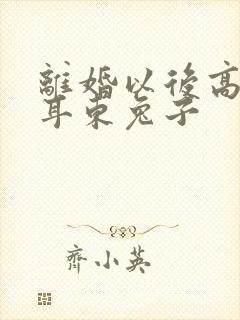 離婚以後高
耳東兔子
齊小英